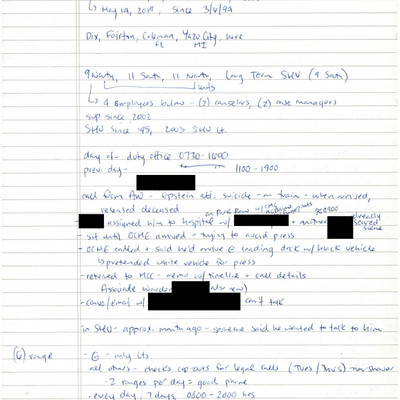 ↳ May 19, 2019, since 3/6/94
Dix, Fairton, Coleman, Yazoo City, here
FL MI
9 North, 11 South, 11 North, Long Term SHU (9 South)
units
↳ 4 employees below - (2) counselors, (2) case managers
sup since 2002
SHU since 95, 2005 SHU Lt.
day of - duty office 0730-1600
prev day - 1100-1900
call from AW - Epstein att. suicide - on train - when arrived,
released deceased
assigned him to hospital w/ + another already
scene
- sit until OCME arrived - trying to avoid press
- OCME called + said he'd arrive @ loading dock w/ black vehicle
↳ pretended white vehicle for press
- returned to MCC - memo w/ timeline + call details
Associate Warden also now)
- convo/email w/ can't talk
in SHU - approx. month ago - someone said he wanted to talk to him
(6) range - G - only its
all others - checks cop-outs for legal calls (Tues/Thurs) non-shower
- 2 ranges per day = good phone
- every day, 7 days, 0600-2000 hrs